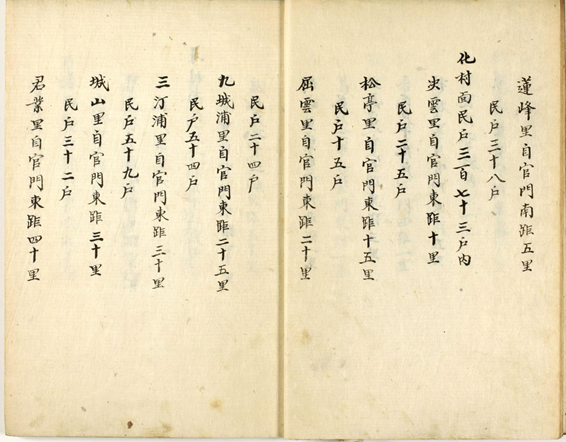 蓮峰里自官門南距五里
民戶三十八戶
化村面民戶三百七十三戶內
尖雲里自官門東距十里
民戶二十五戶
松亭里自官門東距十五里
民戶十五戶
屈雲里自官門東距二十里
民戶二十四戶
九城浦里自官門東距二十五里
民戶五十四戶
三汀浦里自官門東距三十里
民戶五十九戶
城山里自官門東距三十里
民戶三十二戶
君業里自官門東距四十里